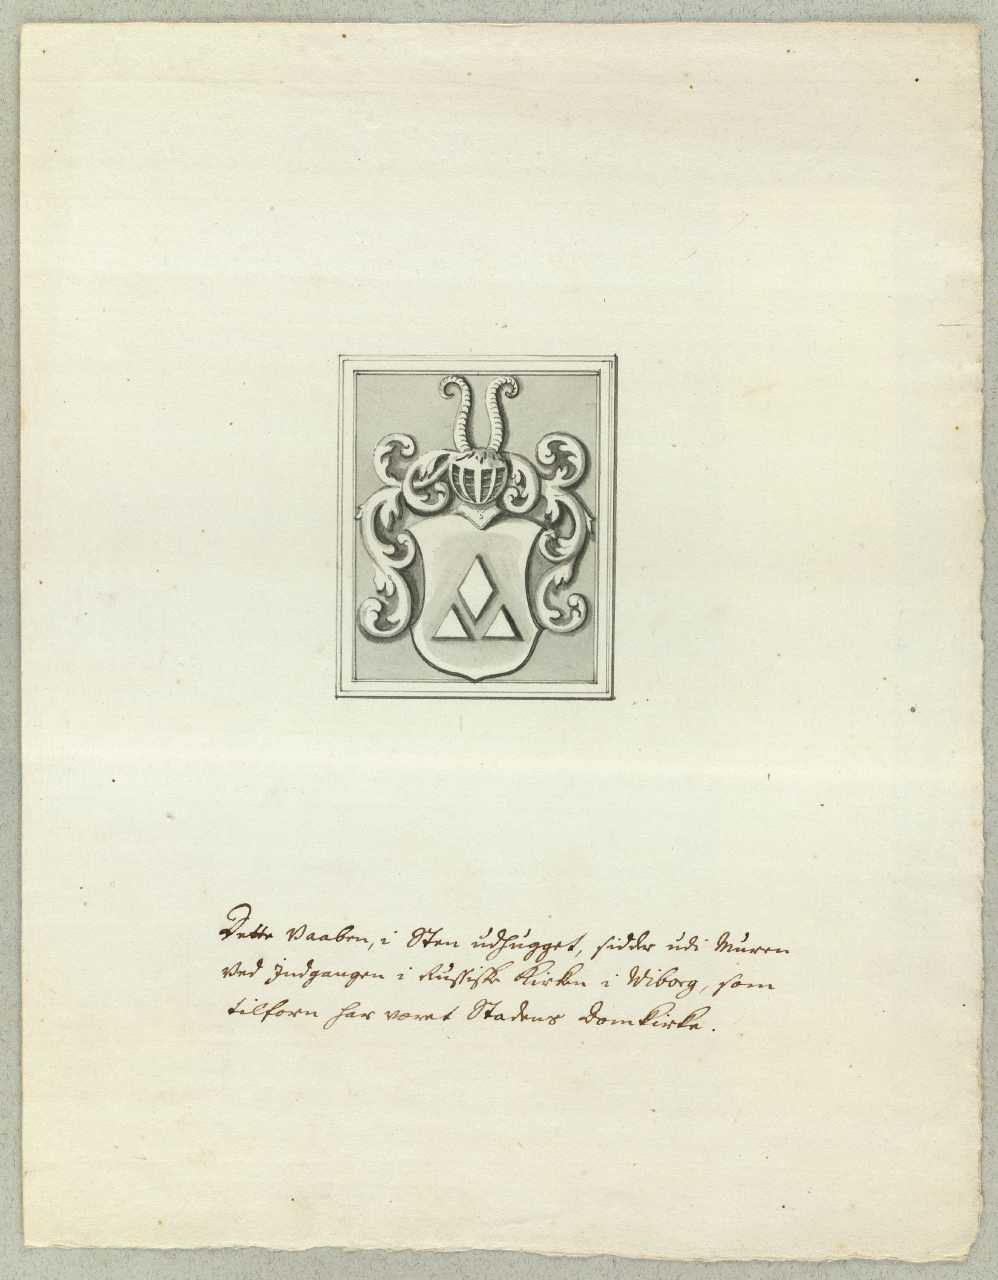 Dette Vaaben, i Sten udhugget, sidder udi Muren
ved Indgangen i Russiske Kirken i Wiborg, som
tilforn har været Stadens Domkirke.